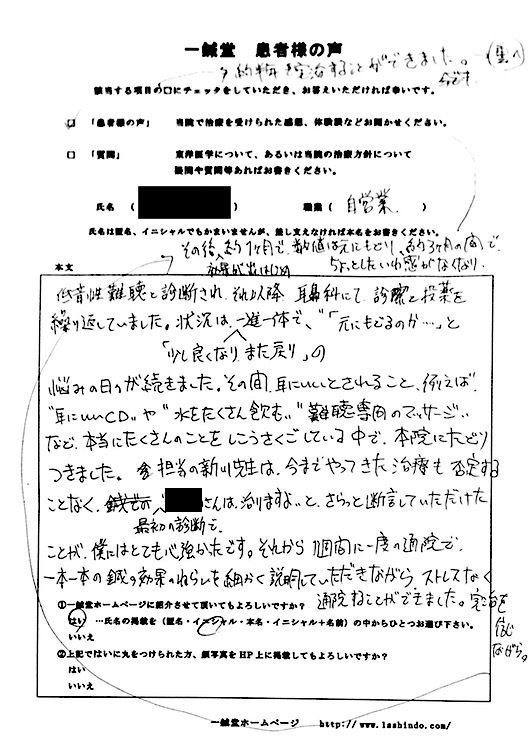 一鍼堂　患者様の声
約半年で完治することができました。
今です。
該当する項目の口にチェックをしていただき、お答えいただければ幸いです。
□ 「患者様の声」 当院で治療を受けられた感想、体験談などお聞かせください。
□ 「質問」 東洋医学について、あるいは当院の治療方針について
疑問や質問等あればお書きください。
氏名 （ ） 職業 （ 自営業 ）
氏名は匿名、イニシャルでもかまいませんが、差し支えなければ本名をお書きください。
その後、約1ヶ月で、数値は元にもどり、約3ヶ月の間で、
効果が出はじめ
ちょっとしたいわ感がなくなり、
本文
低音性難聴と診断され、それ以降 耳鼻科にて、診察と投薬を
繰り返していました。状況は、一進一体で、“「元にもどるのか…」と
「少し良くなり、また戻り」の
悩みの日々が続きました。その間、耳にいいとされること、例えば、
“耳にいいCD”や“水をたくさん飲む”、“難聴専門のマッサージ”
など、本当にたくさんのことをしこうさくごしている中で、本院にたどり
つきました。 担当の新川先生は、今までやってきた治療も否定する
ことなく、“ さんは、治りますよ”と、さらっと断言していただけた
最初の診断で、
ことが、僕にはとても心強かったです。それから1週間に一度の通院で、
一本一本の鍼の効果のねらいを細かく説明していただきながら、ストレスなく
通院することができました。完治を
信じ
ながら。
①一鍼堂ホームページに紹介させて頂いてもよろしいですか？
はい …氏名の掲載を（匿名・イニシャル・本名・イニシャル＋名前）の中からひとつお選び下さい。
いいえ
②上記ではいに丸をつけられた方、顔写真をHP上に掲載してもよろしいですか？
はい
いいえ
一鍼堂ホームページ http://www.1ashindo.com/